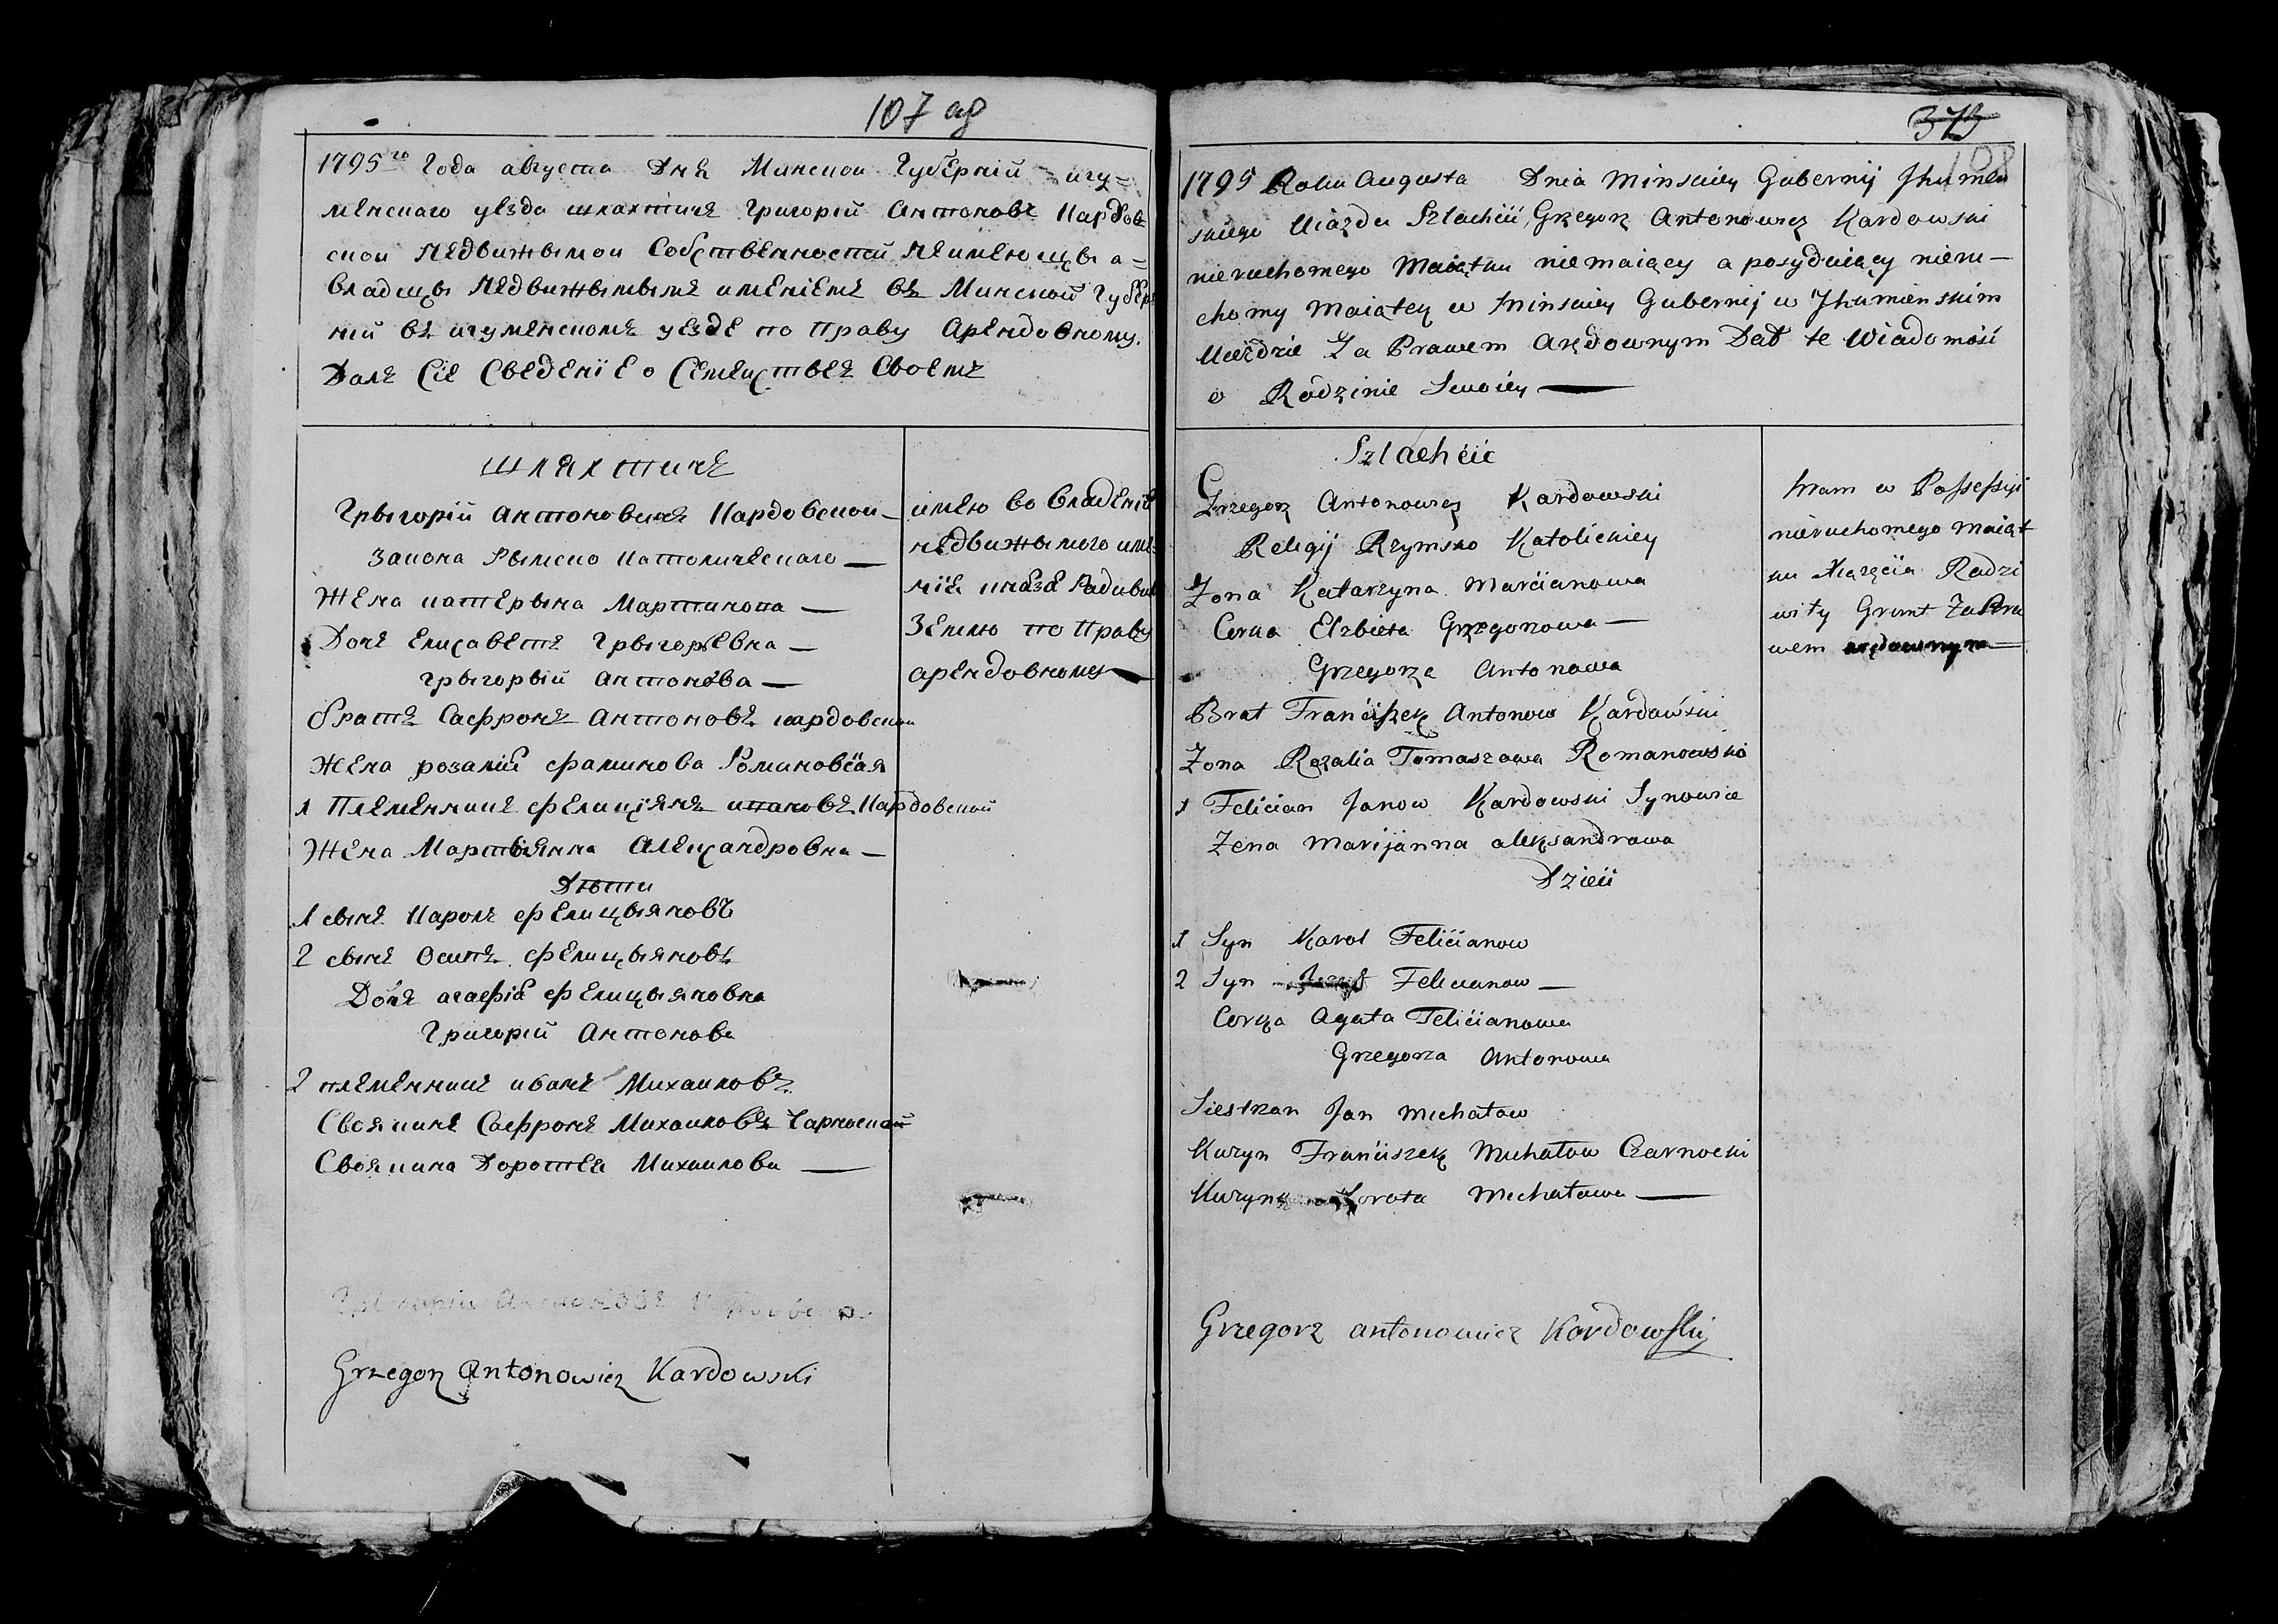 107 об
1795го Года августа Дня Минской Губерній игу=
менского уезда шляхтичъ Григорій Антоновъ Кардов
ской недвижымой Собственностей неимеющы а=
владещы недвижымымъ имениемъ въ Минской Губер
ній въ игуменскомъ уезде по Праву Арендовному.
Далъ Сіе Сведеніе о Семействѣ Своемъ
шляхтичъ
Грыгорій Антоновичъ Кардовской
Закона Рымско Католическаго
Жена катерына Мартинова
Дочъ Елисаветъ Грыгорьевна
Грыгорый Антонова
братъ Сафронъ Антоновъ кардовский
Жена розалій фаминова Романовская
1 Племенникъ фелиціянъ Кардовской
Жена Марыянна Александровна
Дѣти
1 сынъ Каролъ фелицыяновъ
2 сынъ Осипъ фелицыяновъ
Дочъ агафіа фелицыяновна
Григорій Антонова
2 племенникъ иванъ Михайловъ
Своякинъ Сафронъ Михайловъ Чарноский
Своякина Доротея Михайлова
имею во владение
недвижымого име
ніе князе Радивил
Землю по Праву
арендовному
Grzegorz Antonowicz Kardowski
373
108
1795 Roku Augusta Dnia Minskiey Gubernij Jhumen
skiego Uiazdu Szlachcic Grzegorz Antonowicz Kardowski
nieruchomego Maiątku niemaiący a posyduiący nieru-
chomy Maiątek w Minskiey Gubernij w Jhumienskim
Uieździe Za Prawem Arędownym Dał te Wiadomość
o Rodzinie Swoiey
Szlachcic
Grzegorz Antonowicz Kardowski
Religij Rzymsko Katolickiey
Zona Katarzyna Marcianowa
Corka Elzbieta Grzegorzowa
Grzegorza Antonowa
Brat Franciszek Antonow Kardowski
Zona Rozalia Tomaszowa Romanowska
1 Felician Janow Kardowski Synowiec
Zena Marijanna alekzandrowa
Dzieci
1 Syn Karol Felicianow
2 Syn Felicianow
Corka Agata Felicianowa
Grzegorza Antonowa
Siestrzan Jan Michałow
Kuzyn Franciszek Michałow Czarnocki
Kuzynka Dorota Michałowa
Mam w Possessyi
nieruchomego maiąt
ku Xiązęcia Radzi
wiły Grunt Za Pra
wem arędownym
Grzegorz antonowicz Kordowski